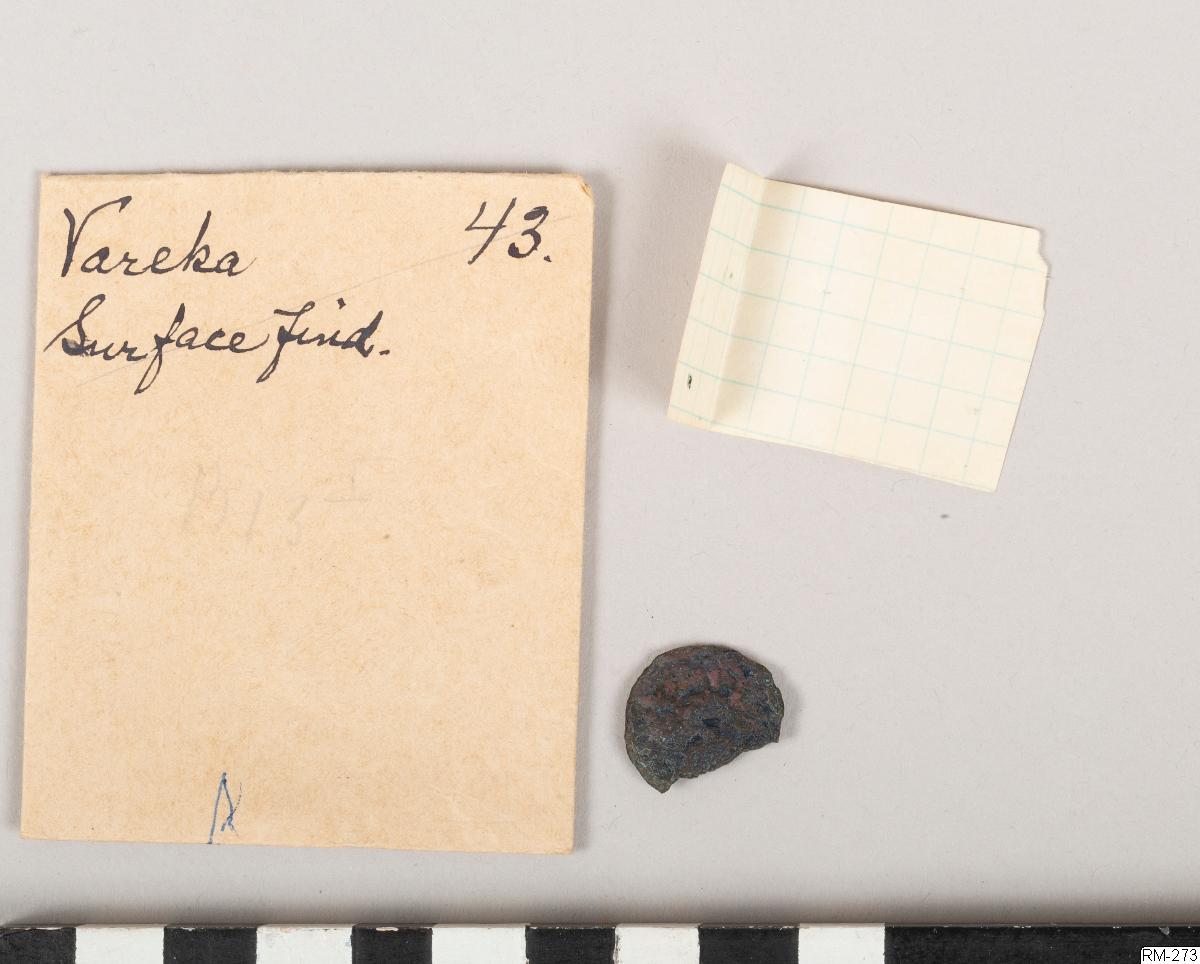 Vareka 43.
Surface find.
RM-273